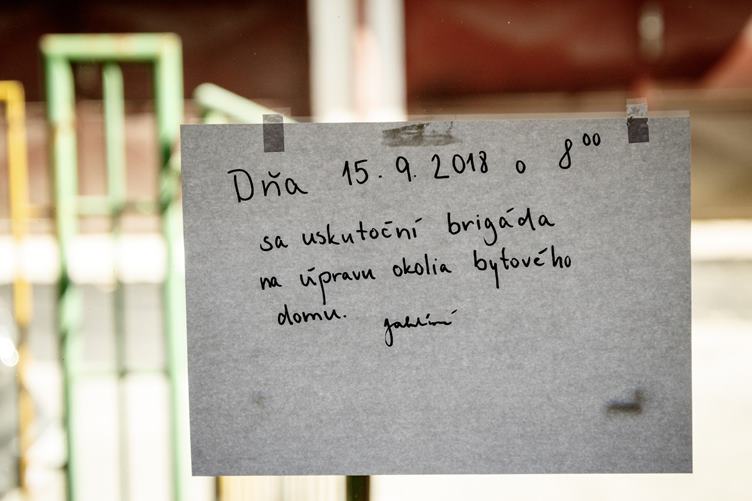 Dňa 15.9.2018 o 8⁰⁰
sa uskutoční brigáda
na úpravu okolia bytového
domu.